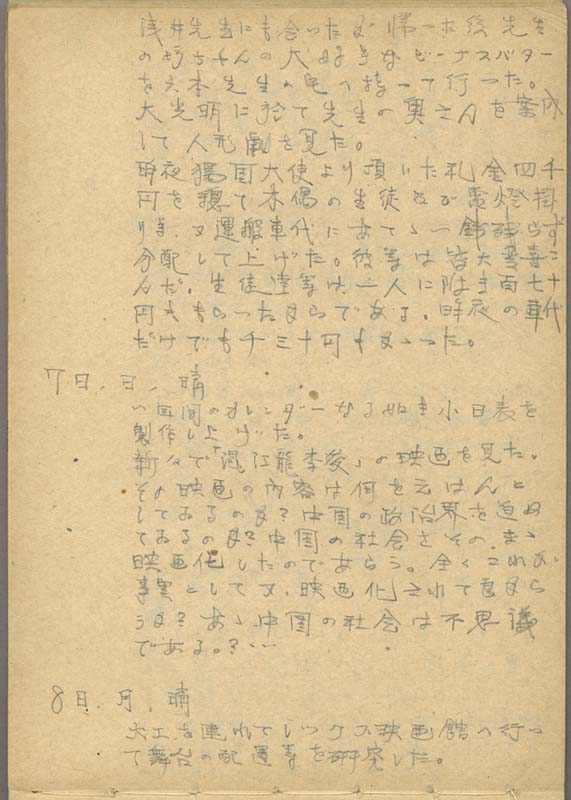 浅井先生にも会いたが帰った後先生
の坊ちゃんの大好きなピーナスバター
を六本先生の宅へ持って行った。
大光明に於て先生の奥さんを案内
して人形劇を見た。
昨夜獨国大使より頂いた礼金四千
円を穏て木偶の生徒 が電燈掛
り等、又運搬車代にあて、一餘碎らず
分配して上げた。彼等は皆大変喜こ
んだ。生徒達等は一人に附き百七十
円もらったからである。昨夜の車代
だけでも千三十円もかゝった。
7日、日、晴
一週間のカレンダーなる如き小日表を
製作し上げた。
新々で「混江龍李俊」の映画を見た。
その映画の内容は何を云はんと
してゐるのか？中国の政治界を
てゐるのか？中国の社会をそのまゝ
映画化したのであらう。全くこれが
事実としてか、映画化されて
うか？あゝ中国の社会は不思議
である。？…
8日、月、晴
大工を連れてレックス映画館へ行っ
て舞台の配置等を研究した。